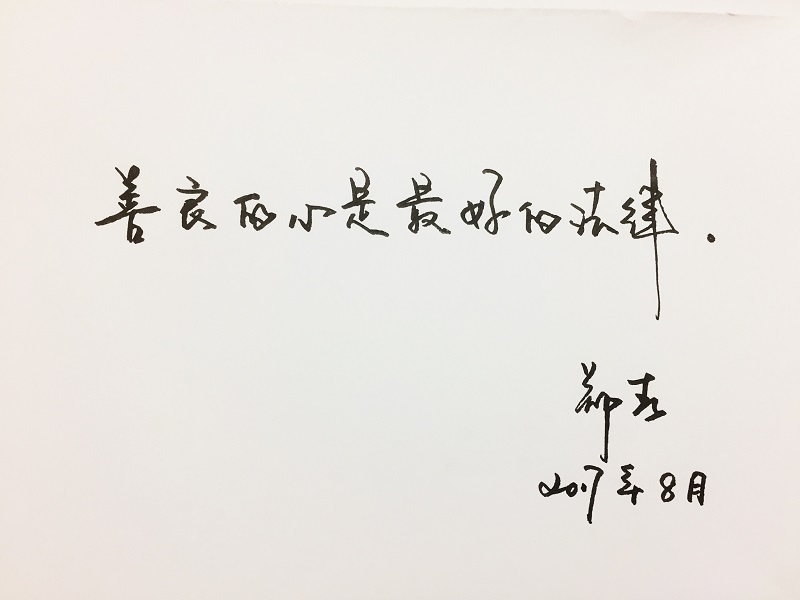 善良的心是最好的法律.
郑
2017年8月